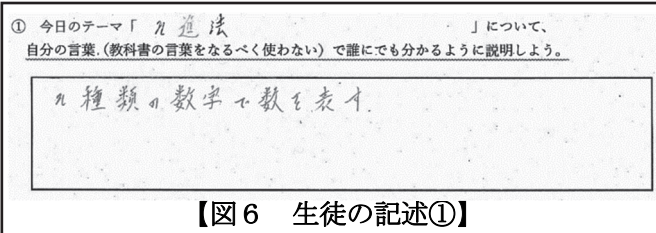 ① 今日のテーマ「 n進法 」について、
自分の言葉.(教科書の言葉をなるべく使わない)で誰にでも分かるように説明しよう。
n種類の数字で数を表す.
【図6 生徒の記述①】